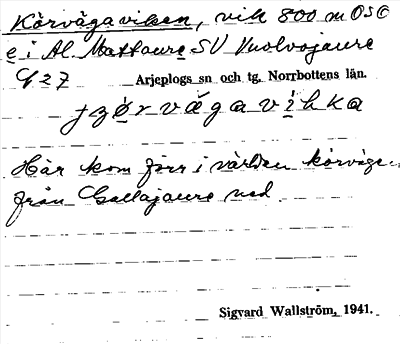 Körvägaviken, vik 800 m OSO
e i Al. Mattaure SV Vuolvojaure
27 Arjeplogs sn och tg. Norrbottens län.
Här kom förr i världen körvägen
från Gallajaure ned
Sigvard Wallström, 1941.